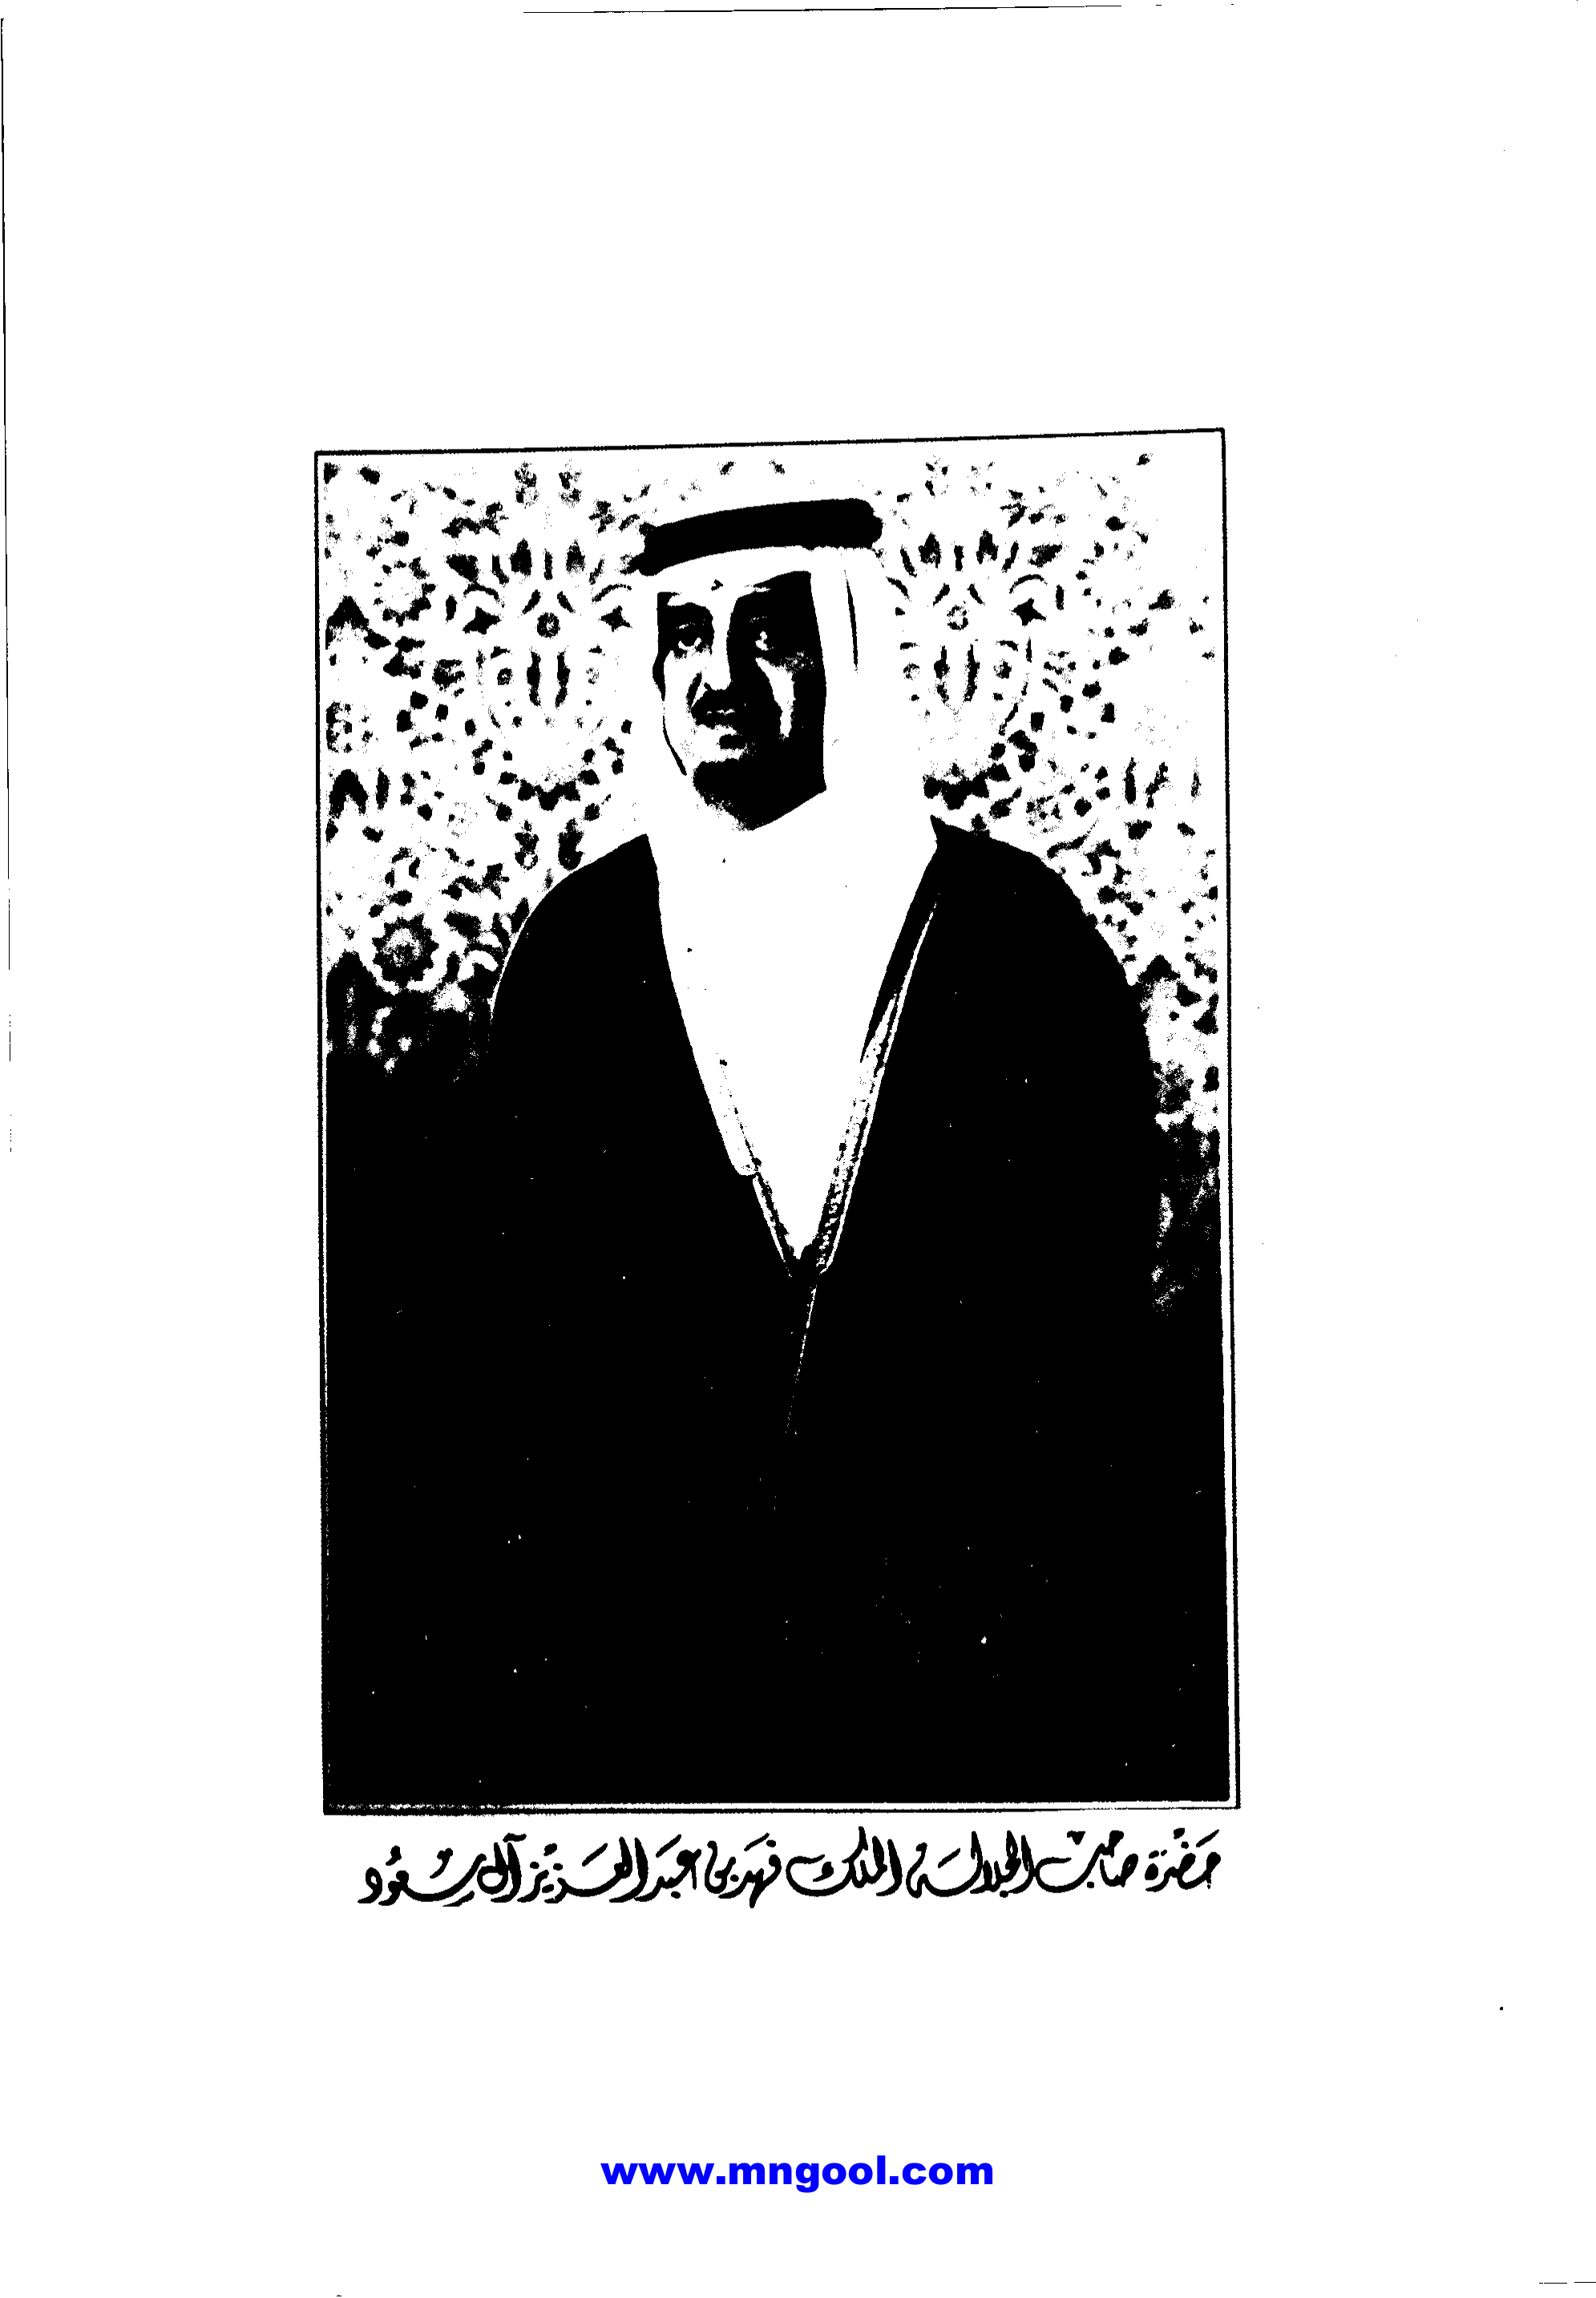 حَضْرَة صَاحِبْ الجلالَة الملك فهَد بن عبَد العَزيْز آل سُعُود
www.mngool.com